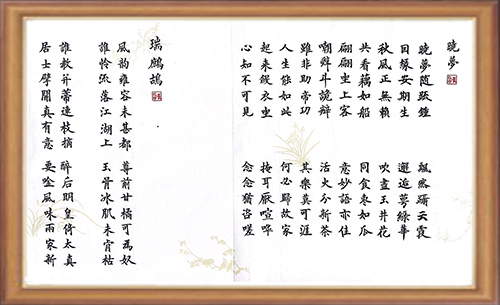 曉夢
曉夢随疏鐘 飄然躋云霞
因緣安期生 邂逅萼綠華
秋風正無賴 吹盡玉井花
共看藕如船 同食棗如瓜
翩翩坐上客 意妙語亦佳
嘲辭斗詭辯 活火分新茶
雖非助帝功 其樂莫可涯
人生能如此 何必歸故家
起來斂衣坐 掩耳厭喧嘩
心知不可見 念念猶咨嗟
瑞鷓鴣
風韵雍容未甚都 尊前甘橘可為奴
誰憐流落江湖上 玉骨冰肌未肯枯
誰教并蒂連枝摘 醉后明皇倚太真
居士擘開真有意 要吟風味兩家新